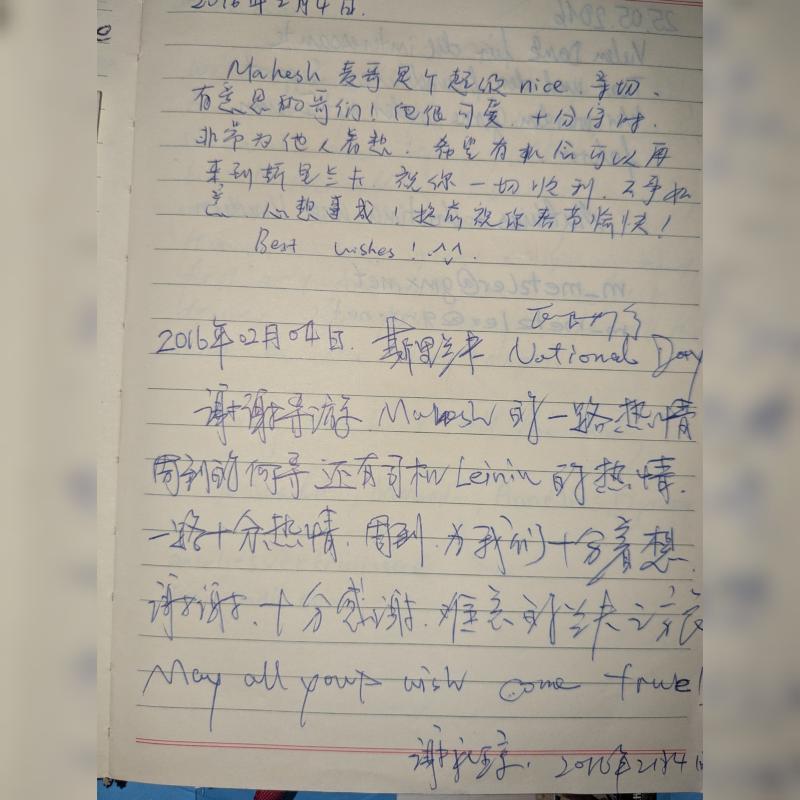 2016年2月4日.
Mahesh 麦哥是个超级 nice 亲切、
有意思的哥们！他很可爱、十分守时.
非常为他人着想. 希望有机会可以再
来到斯里兰卡. 祝你一切顺利. 万事如
意 心想事成！提前祝你春节愉快！
Best wishes！^^
2016年02月04日. 斯里兰卡 National Day
谢谢导游 Mahesh 的一路热情
周到的 导 还有司机 Leinin 的热情.
一路十分热情. 周到. 为我们十分着想.
谢谢. 十分感谢. 难忘的兰卡之旅
May all your wish come true!
2016年2月4日
25.05.2016
m_metzler@gmx.net